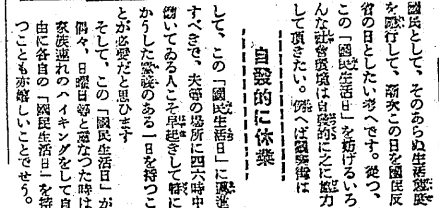 國民として、そのあらぬ生活態度
を遂行して、漸次この日を國民反
省の日としたい考へです。從つ、
この「國民生活日」を妨げるいろ
んな社會環境は自發的に之に協力
して頂きたい。例へば歡樂街は
自發的に休業
、この「國民生活日」に
すべきで、夫等の場所に四六時中
働いてゐる人こそ早起きして特に
かうした意義のある一日を持つこ
とが必要だと思ひます
そして、この「國民生活日」が
偶々、日曜日等と重なつた時は
家族連れのハイキングをして自
由に各自の「國民生活日」を持
つことも亦嬉しいことでせう。